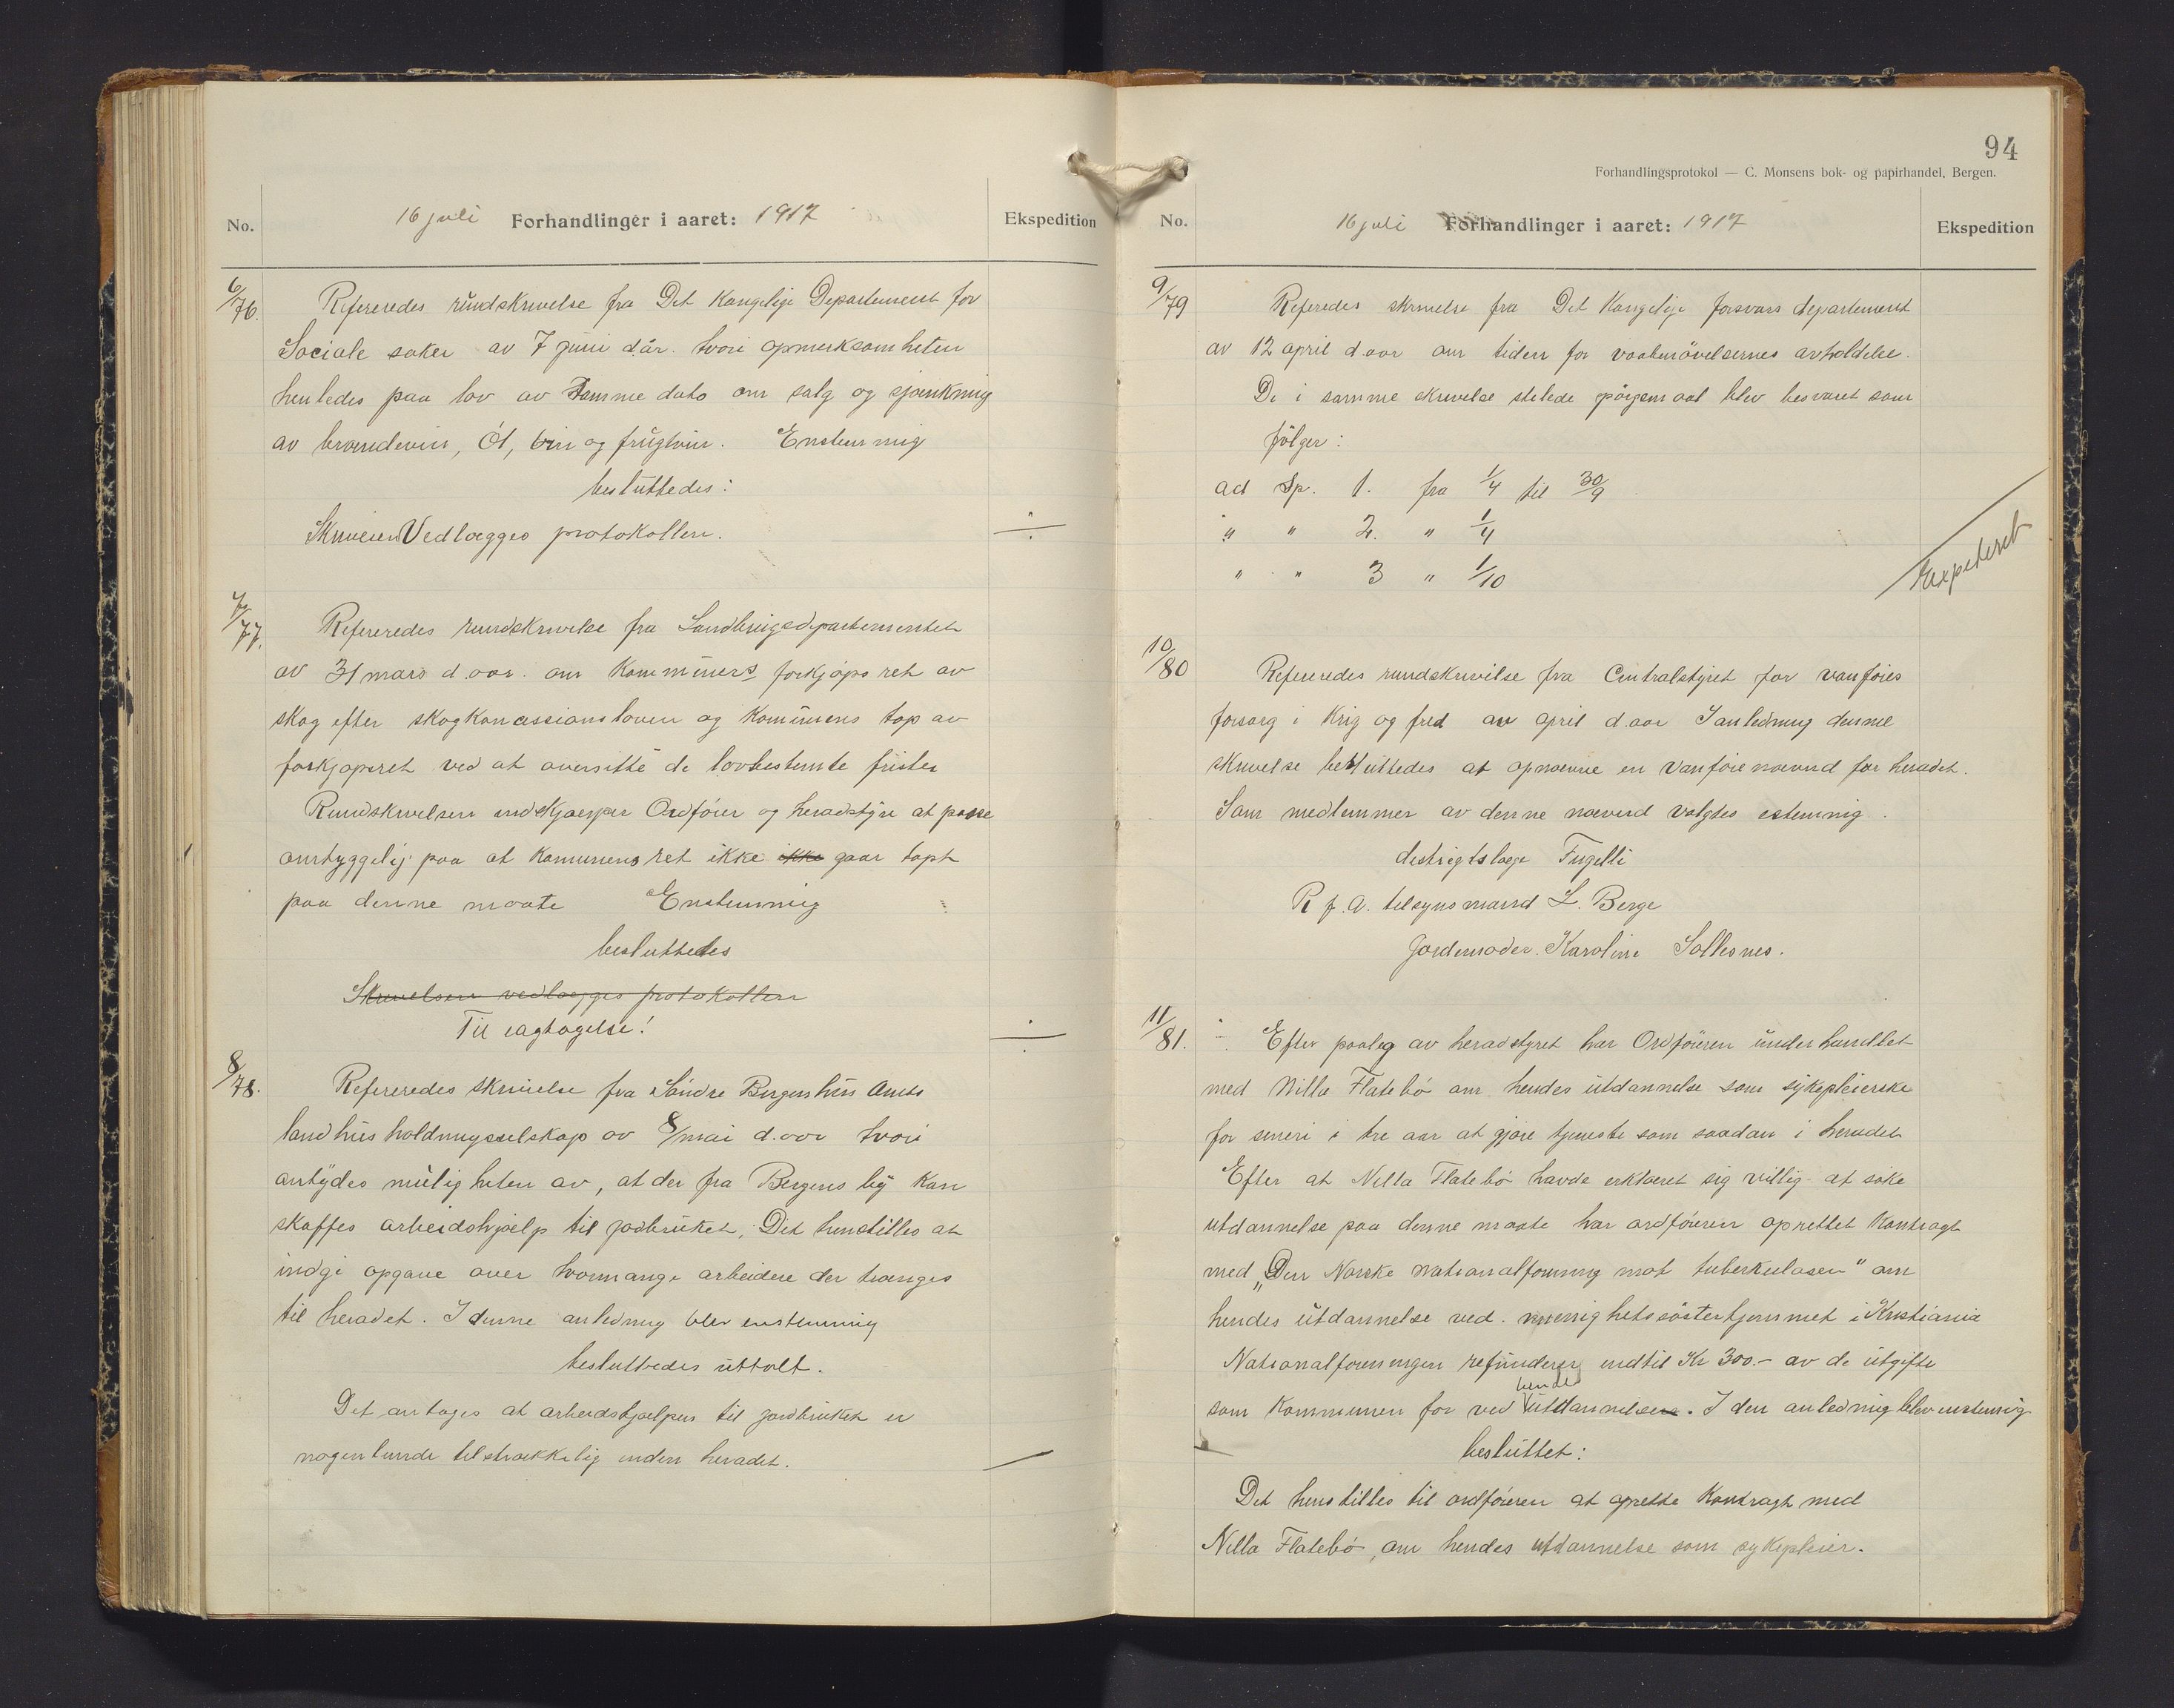 No.
16 juli Forhandlinger i aaret: 1917
Ekspedition
6/76.
Refereredes rundskrivelse fra Det Kongelige Departement for
Sociale saker av 7 juni d år. hvori opmerksomheten
henledes paa lov av samme dato om salg og sjænkning
av brændevin, Øl, vin og frugtvin. Enstemmig
besluttedes:
Skrivelsen Vedlægges protokollen.
7/77.
Refereredes rundskrivelse fra Landbrugsdepartementet
av 31 mars d. aar. om Kommuners forkjøpsret av
skog efter skogkoncessionsloven og Kommunens tap av
forkjøpsret ved at oversitte de lovbestemte frister
Rundskrivelsen indskjærper Ordfører og heradstyre at passe
omhyggelig paa at Komunens ret ikke ikke gaar tapt
paa denne maate Enstemmig
besluttedes
Skrivelsen vedlægges protokollen
Til iagtagelse!
8/78.
Refereredes skrivelse fra Søndre Bergenhus Amts
landhusholdningsselskap av 8/mai d. aar hvori
antydes muligheten av, at der fra Bergens by Kan
skaffes arbeidshjælp til jorbruket. Det henstilles at
indgi opgave over hvormange arbeidere der trænges
til heradet. I denne anledning blev enstemmig
besluttedes uttalt.
Det antages at arbeidshjælpen til jordbruket er
nogenlunde tilstrækkelig inden heradet.
94
Forhandlingsprotokol — C. Monsens bok- og papirhandel, Bergen.
No.
16 juli Forhandlinger i aaret: 1917
Ekspedition
9/79
Referedes skrivelse fra Det Kongelige forsvars departement
av 12 april d. aar om tiden for vaabenøvelsernes avholdelse.
De i samme skrivelse stilede spørgsmaal blev besvaret som
følger:
ad Sp. 1. fra 1/4 til 30/9
" " 2. " 1/4
" " 3 " 1/10
Expederet
10/80
Refereredes rundskrivelse fra Centralstyret for vanføres
forsorg i Krig og fred av april d. aar I anledning denne
skrivelse besluttedes at opnævne en Vanførenævnd for heradet.
Som medlemmer av denne nævnd valgtes estemmig.
distrigtslæge Fugelli
R. f. A. tilsynsmand L. Berge
Jordemoder Karoline Sollesnes.
11/81.
Efter paalæg av heradstyret har Ordføreren underhandlet
med Nilla Flatebø om hendes utdannelse som sykepleierske
for senere i tre aar at gjøre tjeneste som saadan i heradet
Efter at Nilla Flatebø havde erklæret sig villig at søke
utdannelse paa denne maate har ordføreren oprettet Kontragt
med "Den Norske nationalforening mot tuberkulosen" om
hendes utdannelse ved menighetssøsterhjemmet i Kristiania
Nationalforeningen refunderer indtil Kr 300.- av de utgifter
som Kommunen for ved hendes utdannelsen. I den anledning blev enstemig
besluttet:
Det henstilles til ordføreren at oprette Kontragt med
Nilla Flatebø, om hendes utdannelse som sykepleier.